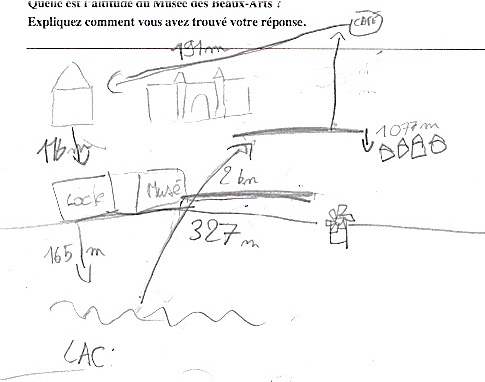 Quelle est l'altitude du Musée des Beaux-Arts ?
Expliquez comment vous avez trouvé votre réponse.
CAFÉ
191m
1077m
116m
2 km
Lock Musé
327m
165 m
LAC: